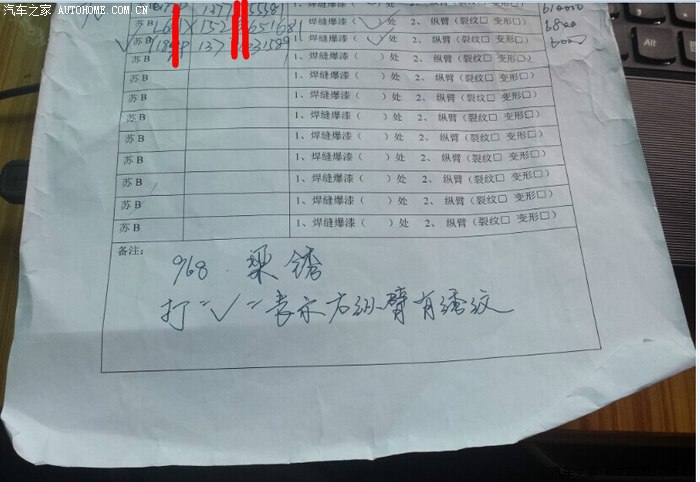 汽车之家 AUTOHOME.COM.CN
苏B 1、焊缝爆漆（✓）处 2、纵臂（裂纹□ 变形□）
苏B 1、焊缝爆漆（✓）处 2、纵臂（裂纹□ 变形□）
苏B 1、焊缝爆漆（ ）处 2、纵臂（裂纹□ 变形□）
苏B 1、焊缝爆漆（ ）处 2、纵臂（裂纹□ 变形□）
苏B 1、焊缝爆漆（ ）处 2、纵臂（裂纹□ 变形□）
苏B 1、焊缝爆漆（ ）处 2、纵臂（裂纹□ 变形□）
苏B 1、焊缝爆漆（ ）处 2、纵臂（裂纹□ 变形□）
苏B 1、焊缝爆漆（ ）处 2、纵臂（裂纹□ 变形□）
苏B 1、焊缝爆漆（ ）处 2、纵臂（裂纹□ 变形□）
苏B 1、焊缝爆漆（ ）处 2、纵臂（裂纹□ 变形□）
苏B 1、焊缝爆漆（ ）处 2、纵臂（裂纹□ 变形□）
备注：
968. 梁锈
打“✓”表示右纵臂有锈纹